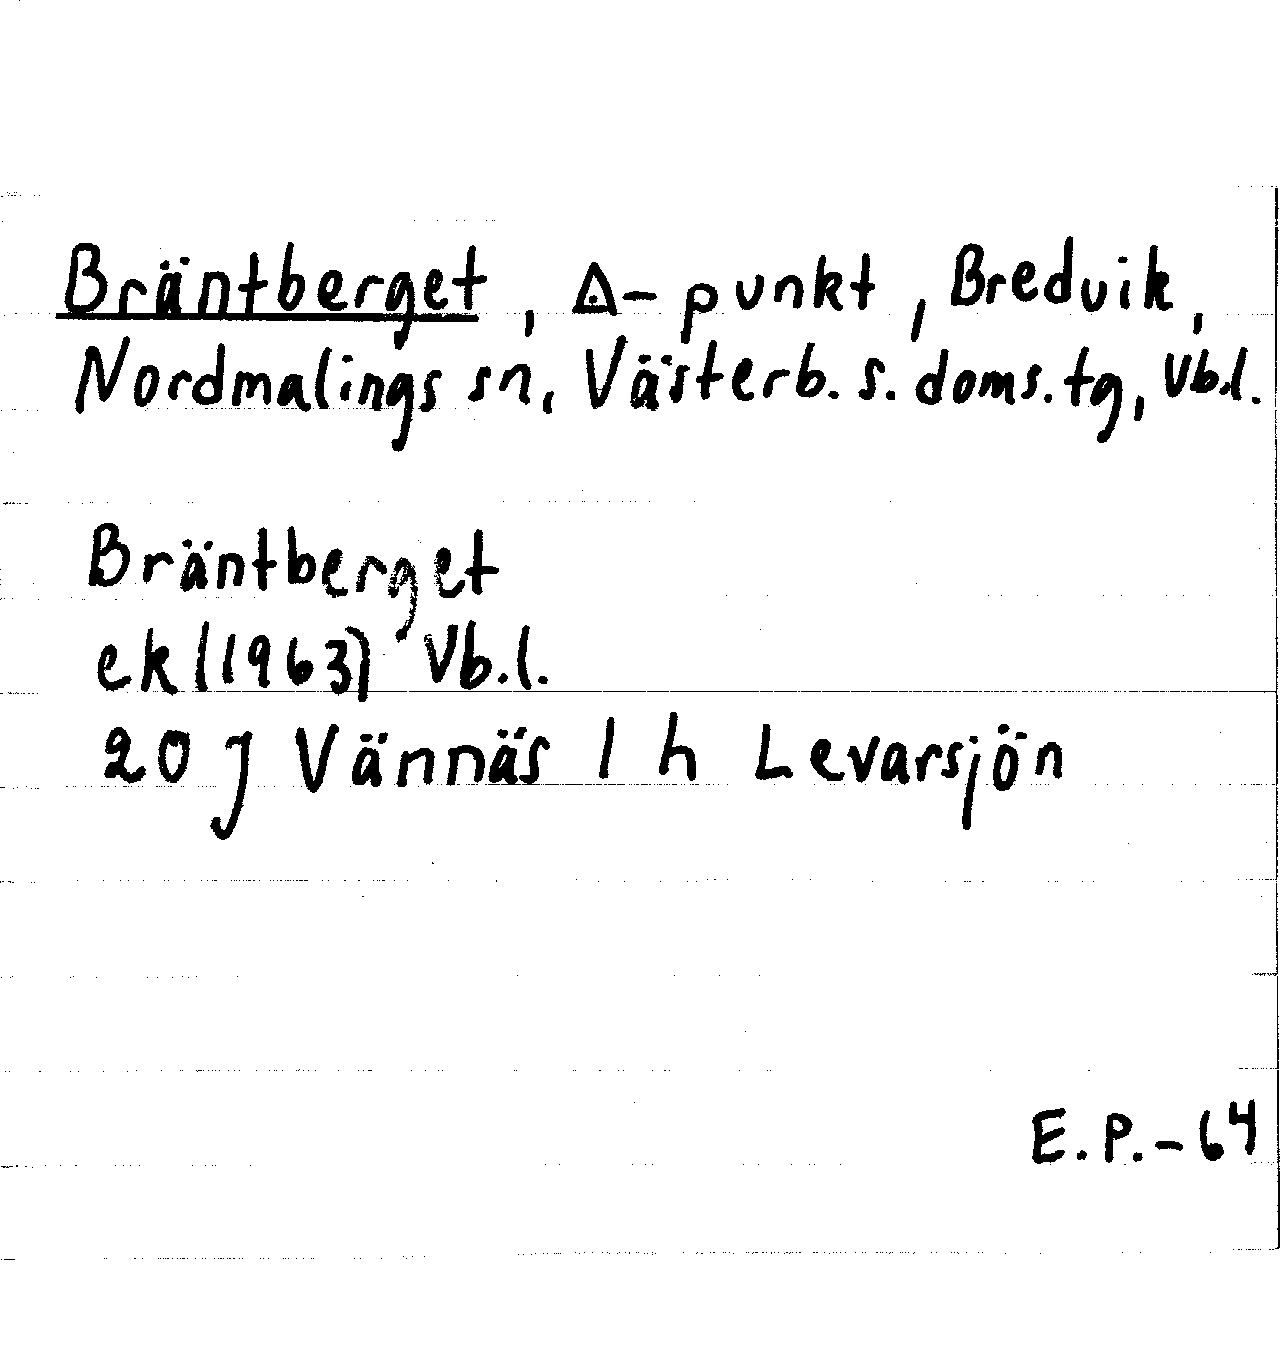 Bräntberget, △-punkt, Bredvik,
Nordmalings sn, Västerb. s. doms. tg, Vb.l.
Bräntberget
ek (1963) Vb.l.
20 J Vännäs 1 h Levarsjön
E.P.-64